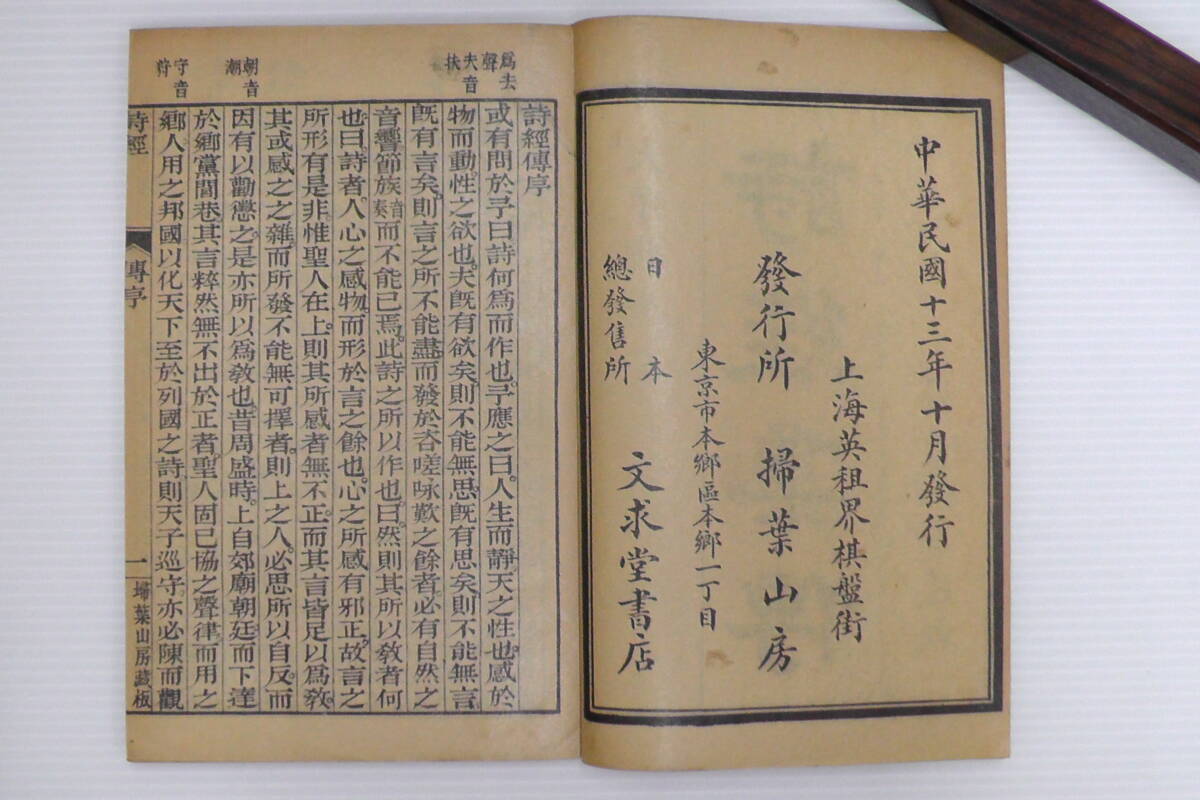 中華民國十三年十月發行
上海英租界棋盤街
發行所 掃葉山房
東京市本鄉區本鄉一丁目
日本
總發售所 文求堂書店
爲去聲
夫音扶
朝音潮
守音狩
詩經傳序
或有問於予曰詩何爲而作也。予應之曰。人生而靜。天之性也。感於
物而動。性之欲也。夫旣有欲矣。則不能無思。旣有思矣。則不能無言。
旣有言矣。則言之所不能盡。而發於咨嗟咏歎之餘者。必有自然之
音響節族音奏而不能已焉。此詩之所以作也。曰。然則其所以敎者何
也。曰。詩者。人心之感物。而形於言之餘也。心之所感有邪正。故言之
所形有是非。惟聖人在上。則其所感者無不正。而其言皆足以爲敎。
其或感之之雜。而所發不能無可擇者。則上之人。必思所以自反。而
因有以勸懲之。是亦所以爲敎也。昔周盛時。上自郊廟朝廷。而下達
於鄉黨閭巷。其言粹然無不出於正者。聖人固已協之聲律。而用之
鄉人。用之邦國。以化天下。至於列國之詩。則天子巡守。亦必陳而觀
詩經 傳序 一 掃葉山房藏板